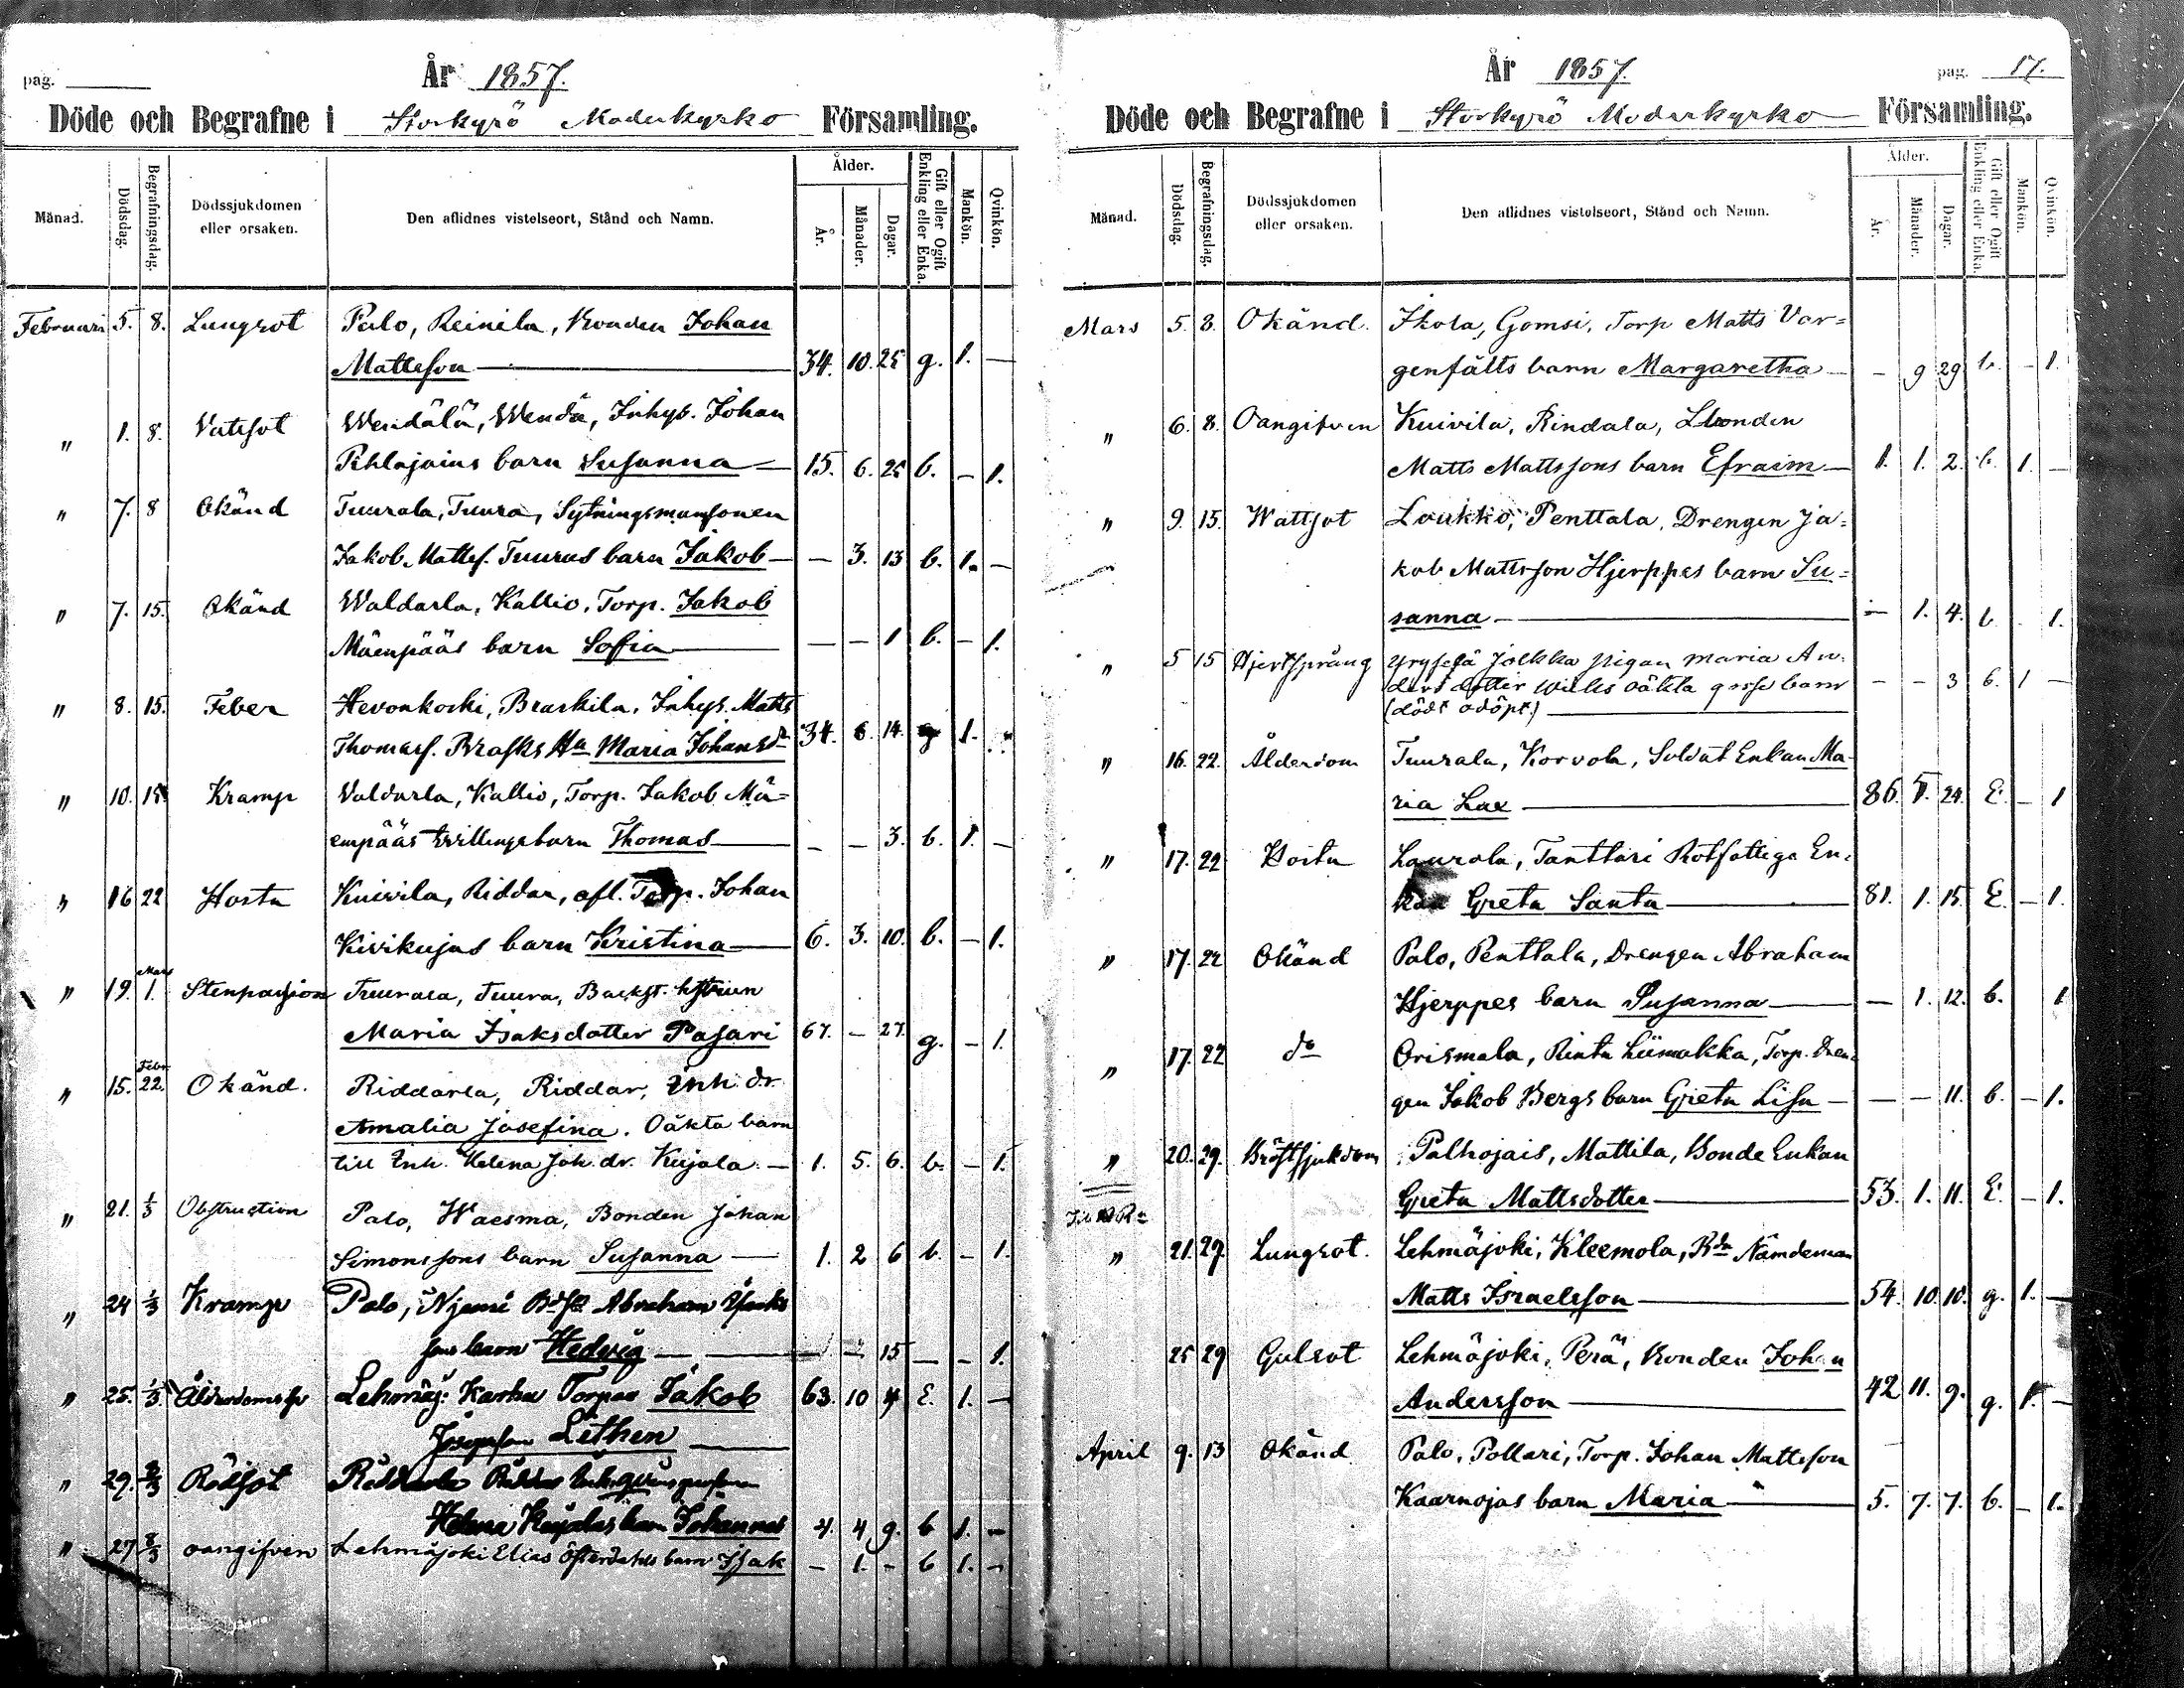 pag.
År 1857.
Döde och Begrafne i Storkyrö Moderkyrko Församling.
Månad. Dödsdag. Begrafningsdag. Dödssjukdomen eller orsaken. Den aflidnes vistelseort, Stånd och Namn. Ålder. År. Månader. Dagar. Gift eller Ogift Enkling eller Enka. Mankön. Qvinkön.
Februari 5. 8. Lungsot Palo, Reinila, Bonden Johan
Mattsson — 34. 10. 25 g. 1. —
" 1. 8. Vatusot Wendälä, Wendä, Inhys. Johan
Pihlajains barn Susanna — 15. 6. 25 b. — 1.
" 7. 8 Okänd Tuurala, Tuura, Sytningsmansonen
Jakob Mattss. Tuuras barn Jakob — — 3. 13 b. 1. —
" 7. 15. Okänd Waldarla, Kallio, Torp. Jakob
Mäenpääs barn Sofia — — — 1 b. — 1.
" 8. 15. Feber Hevonkoski, Braskila, Inhys. Matts
Thomass. Brasks Hu Maria Johansdr 34. 6. 14. g 1.
" 10. 15 Kramp Valdarla, Kallio, Torp. Jakob Mä=
enpääs tvillingebarn Thomas — — — 3. b. 1. —
" 16 22 Hosta Kuivila, Riddar, afl. Torp. Johan
Kivikujas barn Kristina — 6. 3. 10. b. — 1.
Mars
" 19. 1. Stenpassion Tuurala, Tuura, Backst. hstrun
Maria Isaksdotter Pasari 67. — 27. g. — 1.
Febr
" 15. 22. Okänd. Riddarla, Riddar, Inh. dr
Amalia Josefina. Oäkta barn
till Inh. Helena Joh. dr. Kujala. — 1. 5. 6. b. — 1.
" 21. 1/3 Obstruction Palo, Waesma, Bonden Johan
Simonssons barn Susanna — 1. 2 6 b. — 1.
" 24 1/3 Kramp Palo, Njemi Abraham Isaks
sons barn Hedvig — — — 15 — — 1.
" 25. 1/3 Lehmäj: Karhu Torpar Jakob 63. 10 4 E. 1. —
Josepsson Lithen —
" 29. 8/3 Rödsot
Helena Kujalas barn Johannes 4. 4 9. b 1. —
" 27 8/3 oangifven Lehmäjoki Elias Österdahls barn Isak — 1. — b 1. —
År 1857. pag. 17.
Döde och Begrafne i Storkyrö Moderkyrko Församling.
Månad. Dödsdag. Begrafningsdag. Dödssjukdomen eller orsaken. Den aflidnes vistelseort, Stånd och Namn. Ålder. År. Månader. Dagar. Gift eller Ogift Enkling eller Enka. Mankön. Qvinkön.
Mars 5. 8. Okänd. Ikola, Gomsi, Torp Matts Var=
genfälts barn Margaretha — — 9 29 b. — 1.
" 6. 8. Oangifven Kuivila, Rindala, Bonden
Matts Mattssons barn Efraim — 1. 1. 2. b. 1. —
" 9. 15. Wattsot Loukko, Penttala, Drengen Ja=
kob Mattsson Hjerppes barn Su=
sanna — — 1. 4. b. 1.
" 5 15 Hjertspräng Yryselä Jolkka pigan Maria An
ders dotter Wiulis oäkta gosse barn — — 3 b. 1 —
(dödt odöpt.) —
" 16. 22. Ålderdom Tuurala, Korvola, Soldat Enkan Ma-
ria Lax — 86. 1. 24. E. — 1
" 17. 22 Hosta Laurola, Tanttari Rotfattige En=
kan Greta Santa — 81. 1. 15. E. — 1.
" 17. 22 Okänd Palo, Penttala, Drengen Abraham
Hjerppes barn Susanna — — 1. 12. b. 1
" 17. 22 do Orismala, Rinta Liimakka, Torp. Dren=
gen Jakob Bergs barn Greta Lisa — — — 11. b. — 1.
" 20. 29. Bröstsjukdom Palhojais, Mattila, Bonde Enkan
Greta Mattsdotter — 53. 1. 11. E. — 1.
" 21. 29. Lungsot. Lehmäjoki, Kleemola, Nämdeman
Matts Israelsson — 54. 10. 10. g. 1. —
25 29 Gulsot Lehmäjoki, Perä, Bonden Johan
Andersson — 42 11. 9. g. 1. —
April 9. 13 Okänd Palo, Pollari, Torp. Johan Mattsson
Kaarnojas barn Maria — 5. 7. 7. b. — 1.